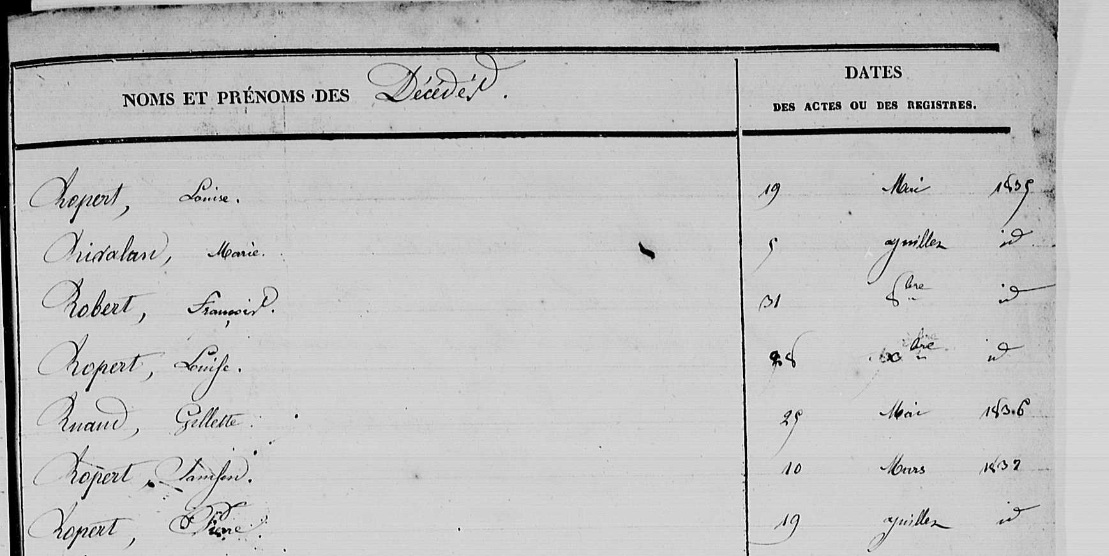 NOMS ET PRÉNOMS DES Décédés.
DATES
DES ACTES OU DES REGISTRES.
Ropert, Louise. 19 Mai 1835
Rivalan, Marie. 5 juillet id
Robert, François. 31 8bre id
Ropert, Louise. 28 bre id
Ruaud, Gillette. 25 Mai 1836
Ropert, 10 Mars 1837
Ropert, Pierre. 19 juillet id